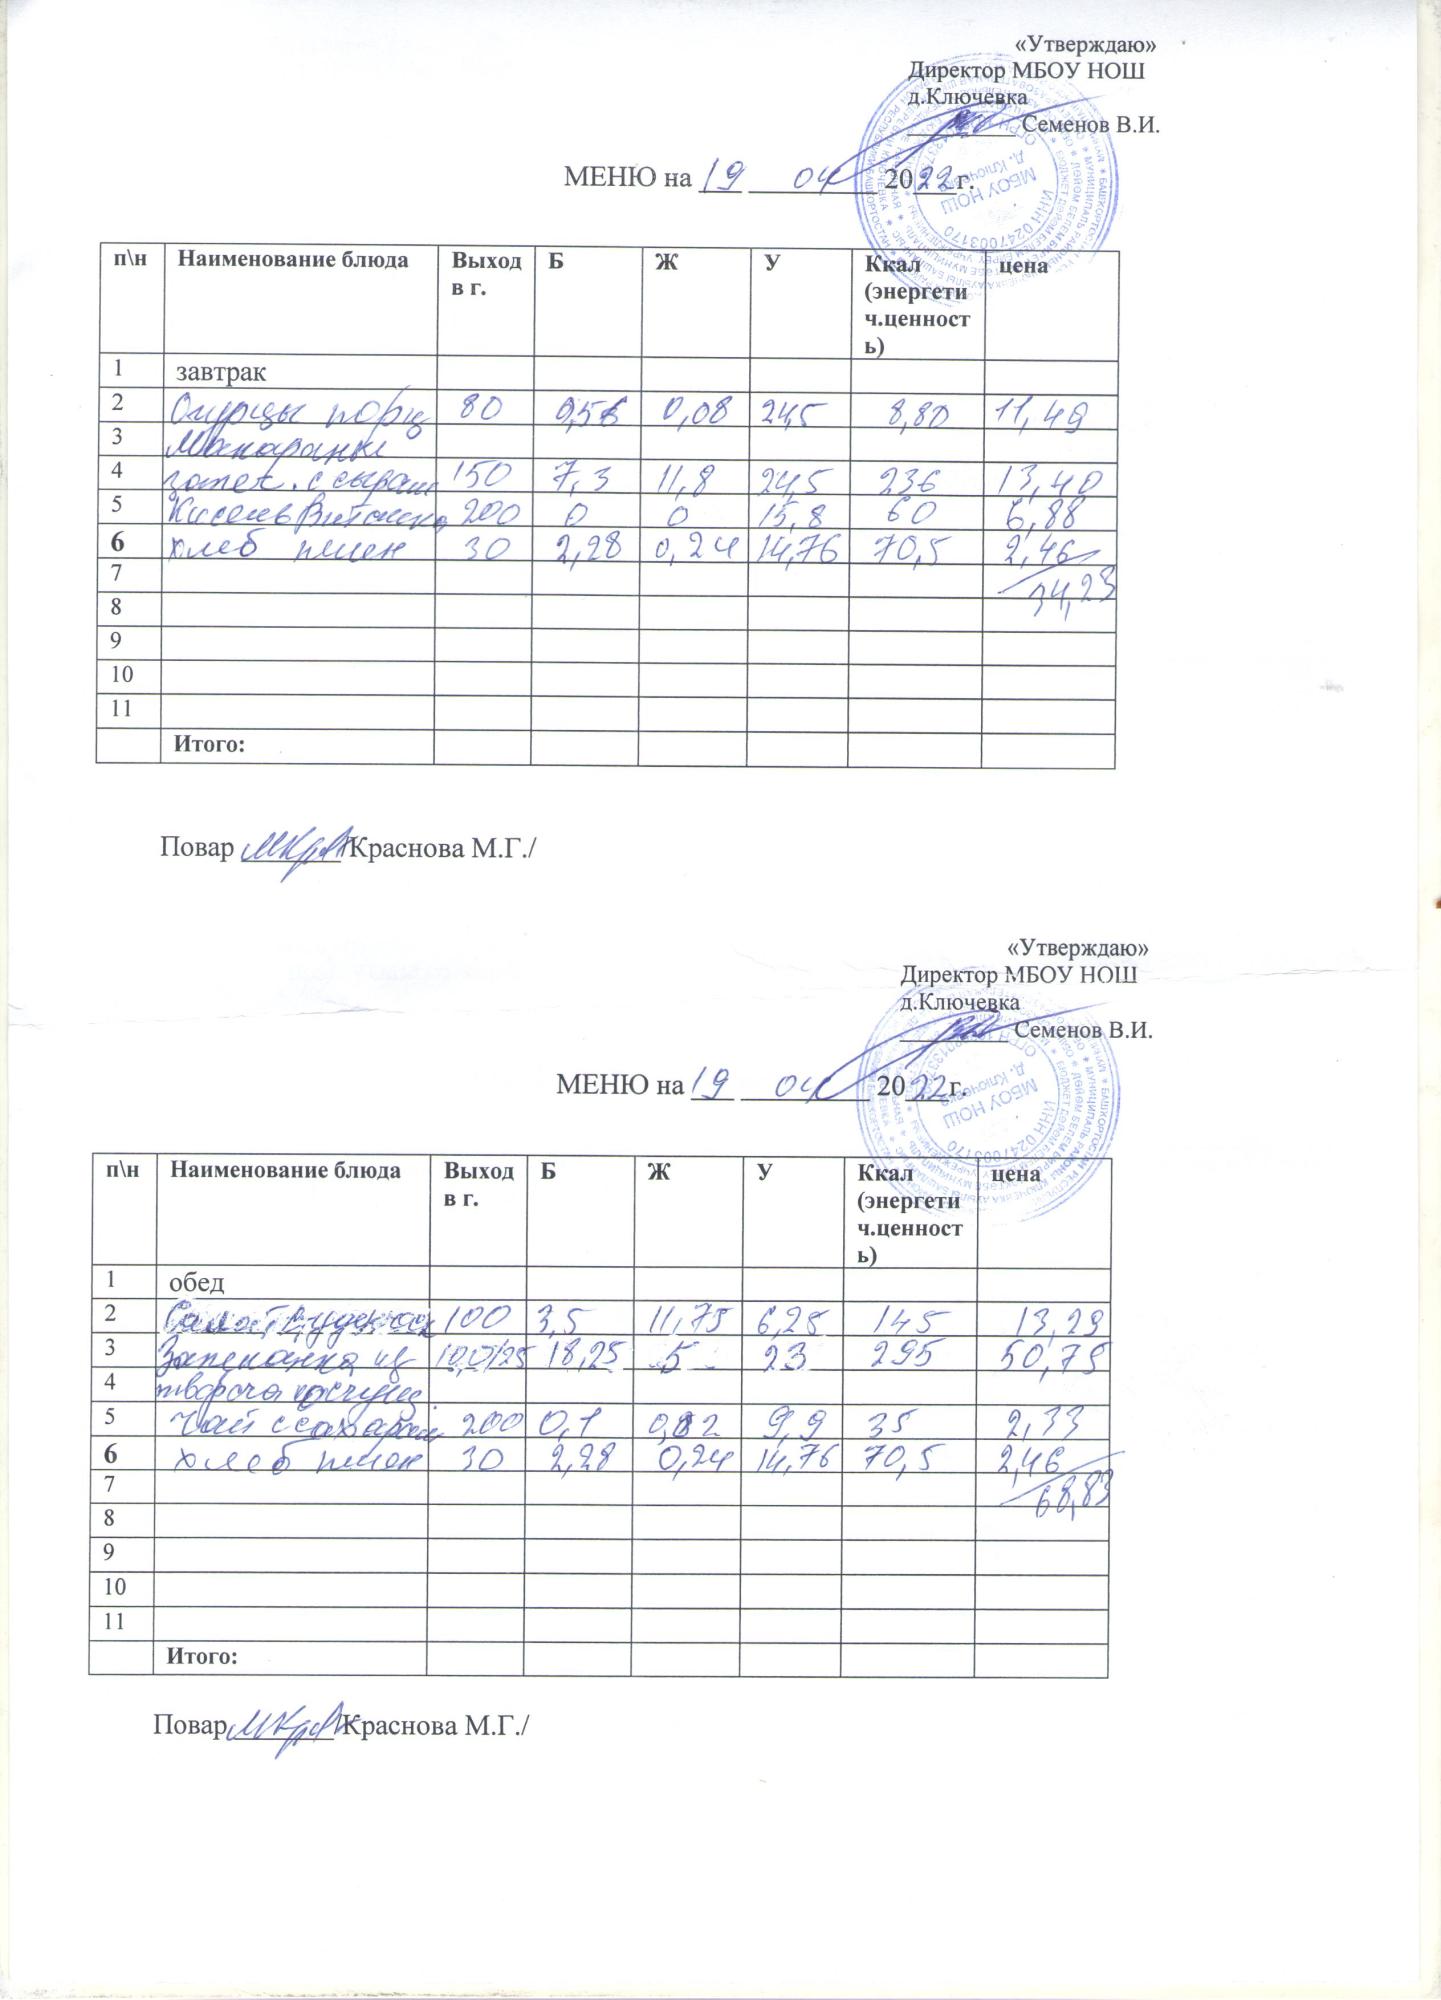 «Утверждаю»
Директор МБОУ НОШ
д.Ключевка
Семенов В.И.
МЕНЮ на 19 04 2022г.
п\н Наименование блюда Выход в г. Б Ж У Ккал (энергетич.ценность) цена
1 завтрак
2 Огурцы порц 80 0,56 0,08 24,5 8,80 11,49
3 Макароны
4 запек. с сыром 150 7,3 11,8 24,5 236 13,40
5 Кисель Витошка 200 0 0 15,8 60 6,88
6 хлеб пшен 30 2,28 0,24 14,76 70,5 2,46
7 34,23
8
9
10
11
Итого:
Повар Краснова М.Г./
«Утверждаю»
Директор МБОУ НОШ
д.Ключевка
Семенов В.И.
МЕНЮ на 19 04 2022г.
п\н Наименование блюда Выход в г. Б Ж У Ккал (энергетич.ценность) цена
1 обед
2 Салат 100 3,5 11,75 6,25 145 13,29
3 Запеканка из 100/25 18,25 5 23 295 50,75
4 творога сгущ.
5 Чай с сахаром 200 0,1 0,02 9,9 35 2,33
6 хлеб пшен 30 2,28 0,24 14,76 70,5 2,46
7 68,83
8
9
10
11
Итого:
Повар Краснова М.Г./
МБОУ НОШ
д. Ключевка
ИНН 0247003170